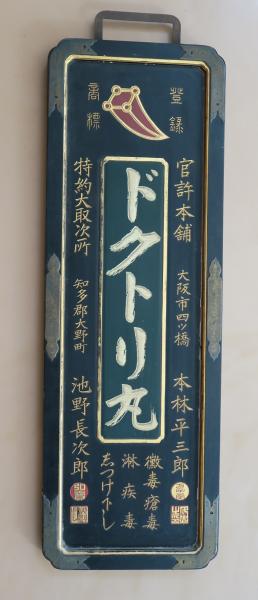 登録
商標
官許本舗
大阪市四ツ橋
本林平三郎
ドクトリ丸
黴毒瘡毒
淋疾毒
志つけ下し
特約大取次所
知多郡大野町
池野長次郎